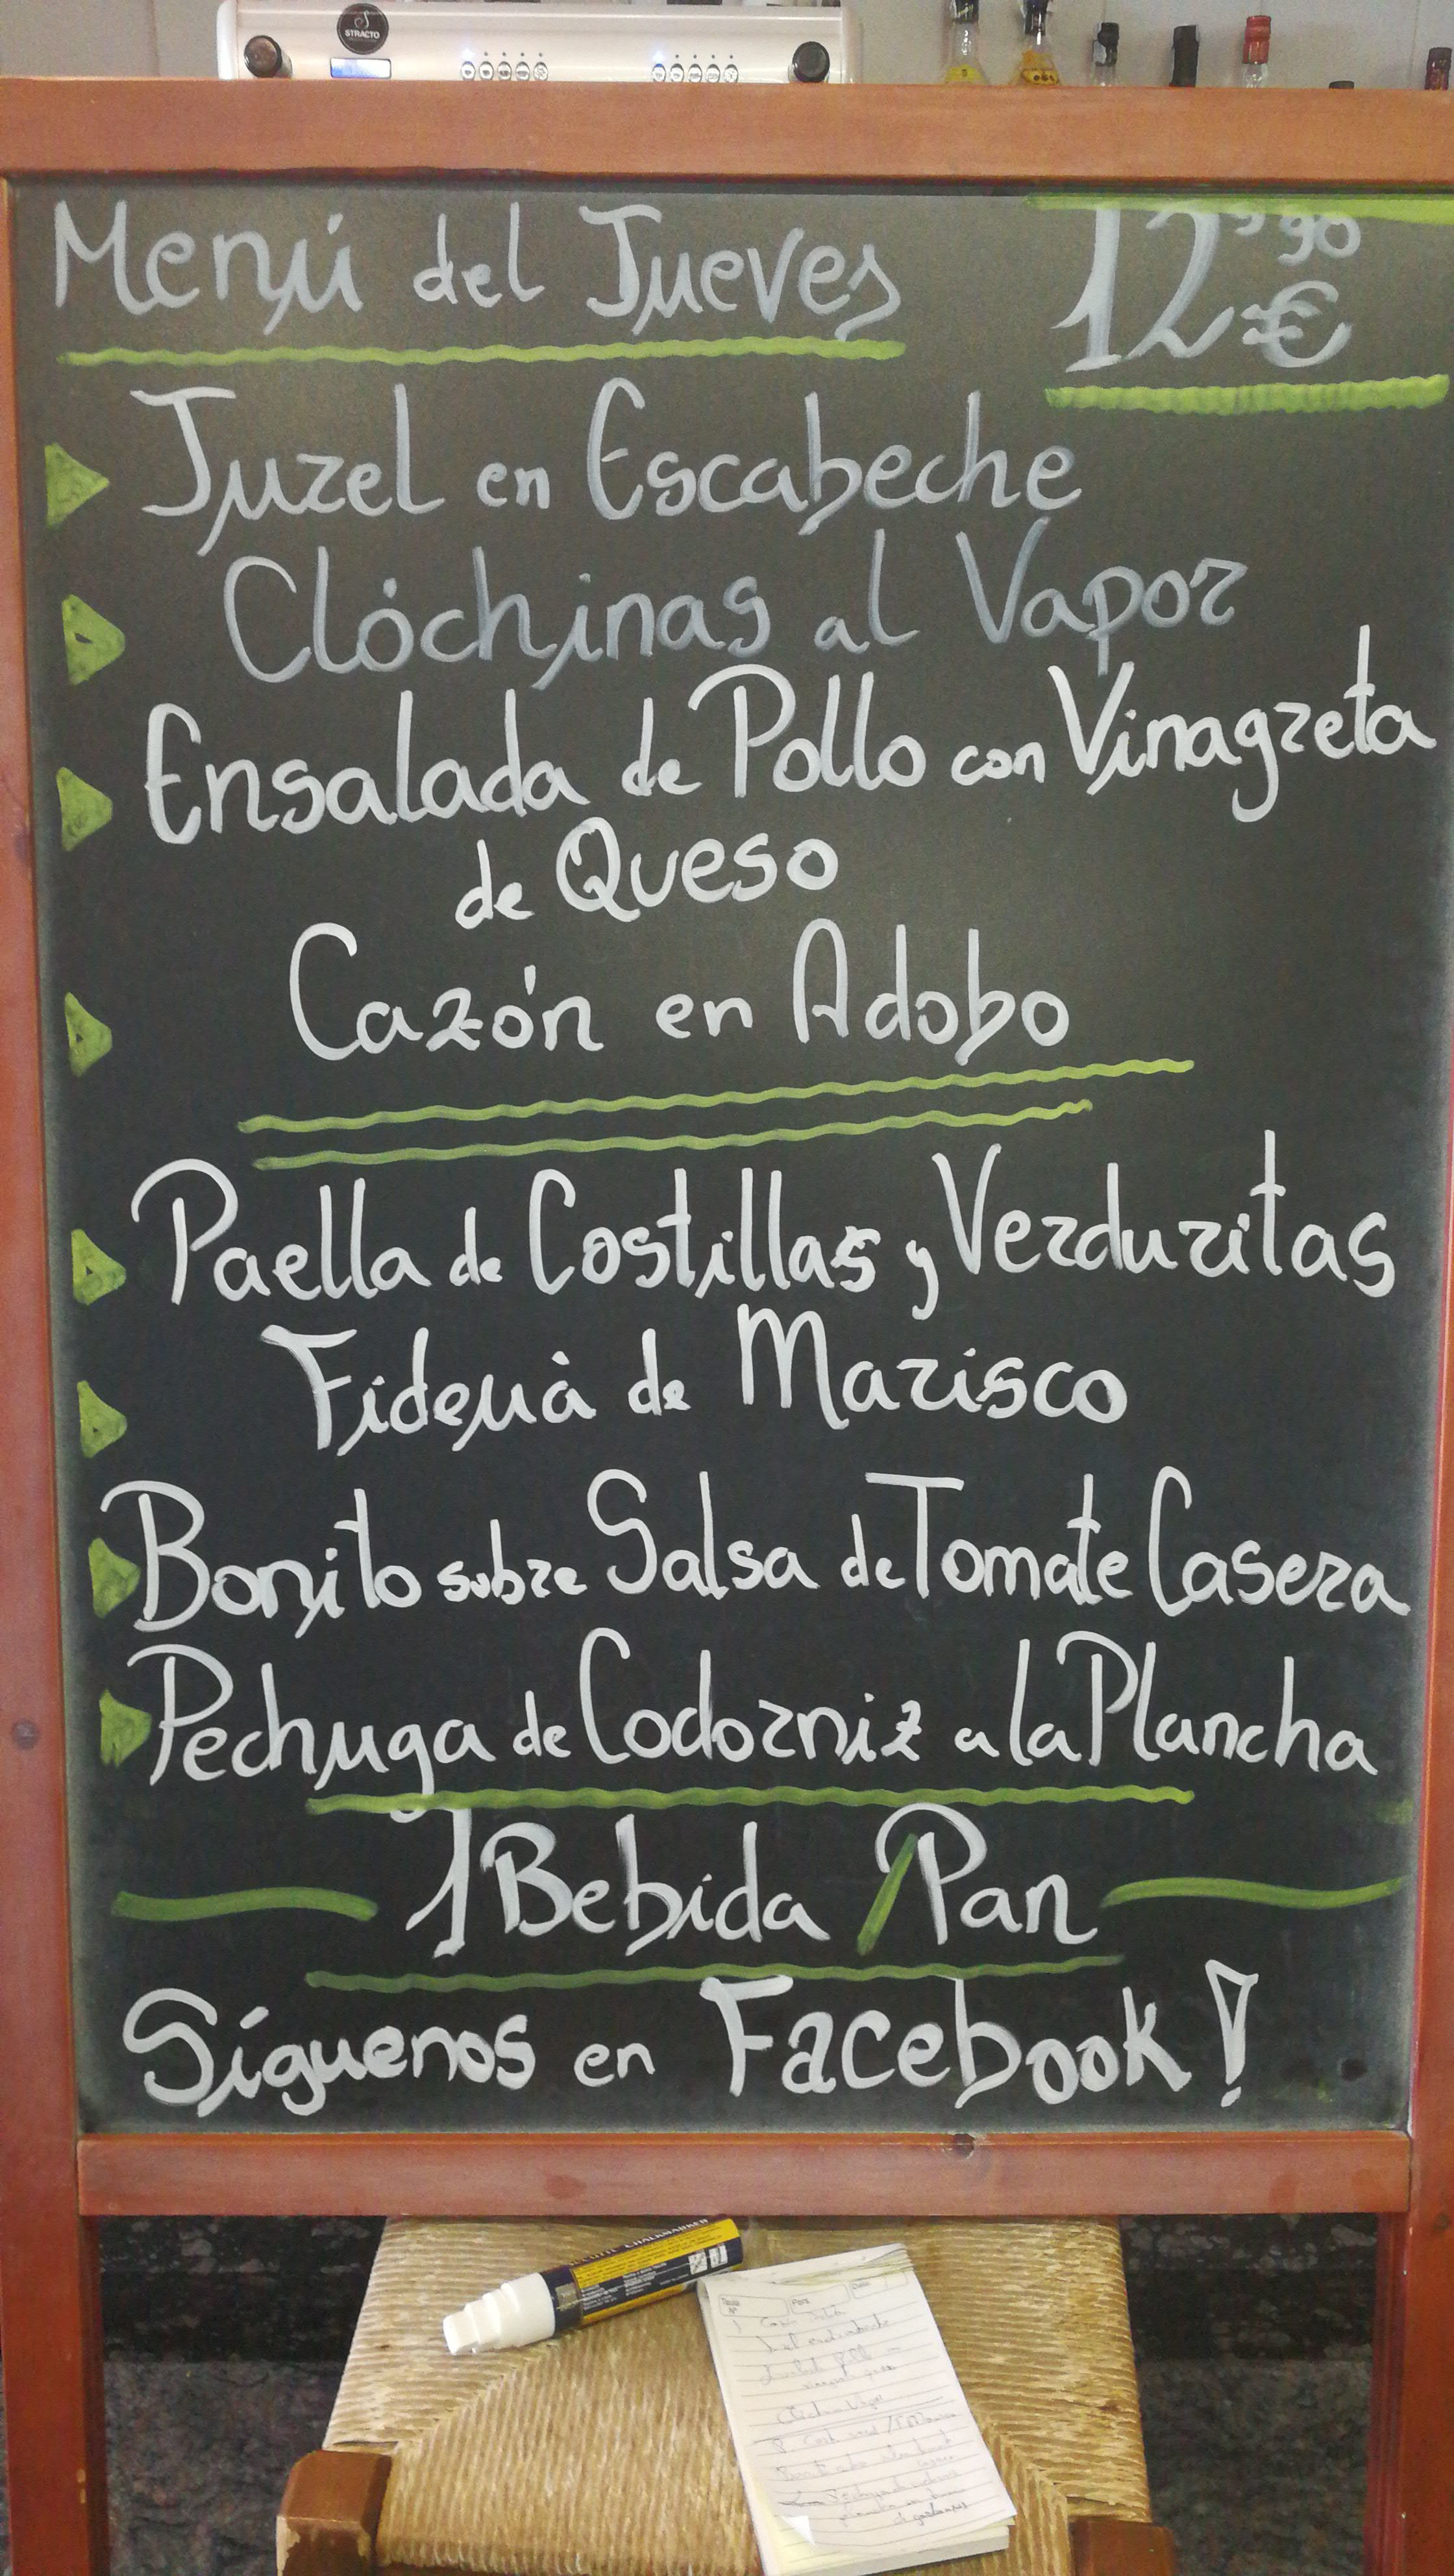 STRACTO
Menú del Jueves 12,90 €
Juzel en Escabeche
Clóchinas al Vapor
Ensalada de Pollo con Vinagreta
de Queso
Cazón en Adobo
Paella de Costillas y Verduritas
Fideuà de Marisco
Bonito sobre Salsa de Tomate Casera
Pechuga de Codorniz a la Plancha
1 Bebida / Pan
Síguenos en Facebook!
CHALKMARKER